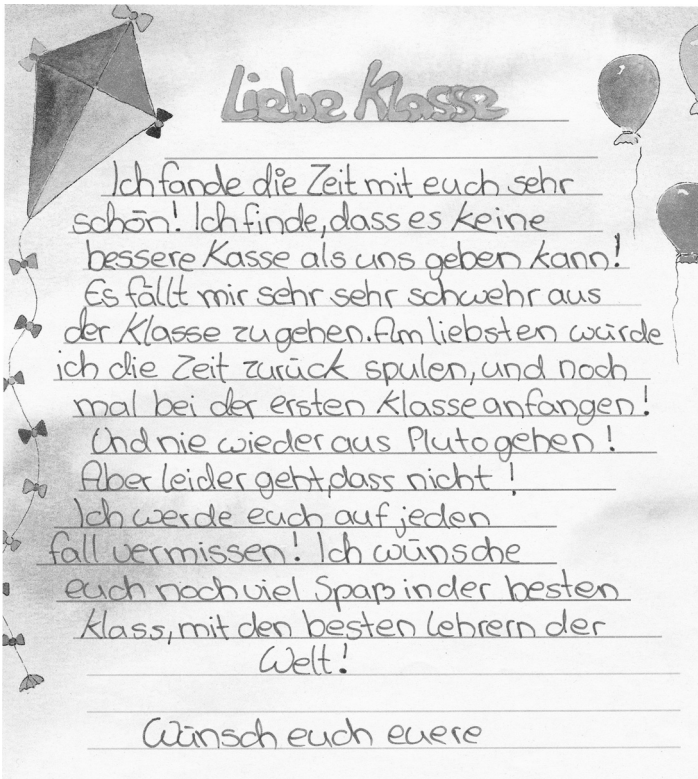 Liebe Klasse
Ich fande die Zeit mit euch sehr
schön! Ich finde, dass es keine
bessere Kasse als uns geben kann!
Es fällt mir sehr sehr schwehr aus
der Klasse zu gehen. Am liebsten würde
ich die Zeit zurück spulen, und noch
mal bei der ersten Klasse anfangen!
Und nie wieder aus Pluto gehen!
Aber leider geht, dass nicht!
Ich werde euch auf jeden
fall vermissen! Ich wünsche
euch noch viel Spaß in der besten
Klass, mit den besten Lehrern der
Welt!
Wünsch euch euere